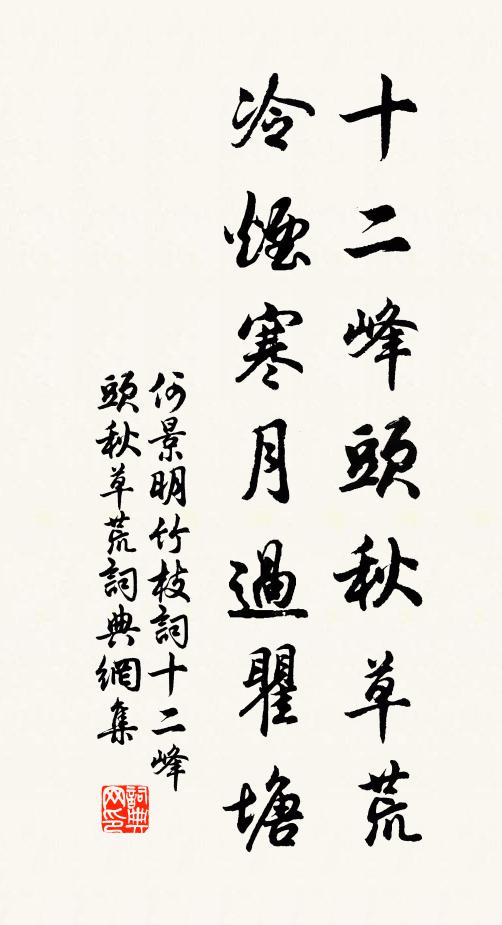 十二峰頭秋草荒
冷煙寒月過瞿塘
何景明竹枝詞十二峰
頭秋草荒詞典網集
詞典网印